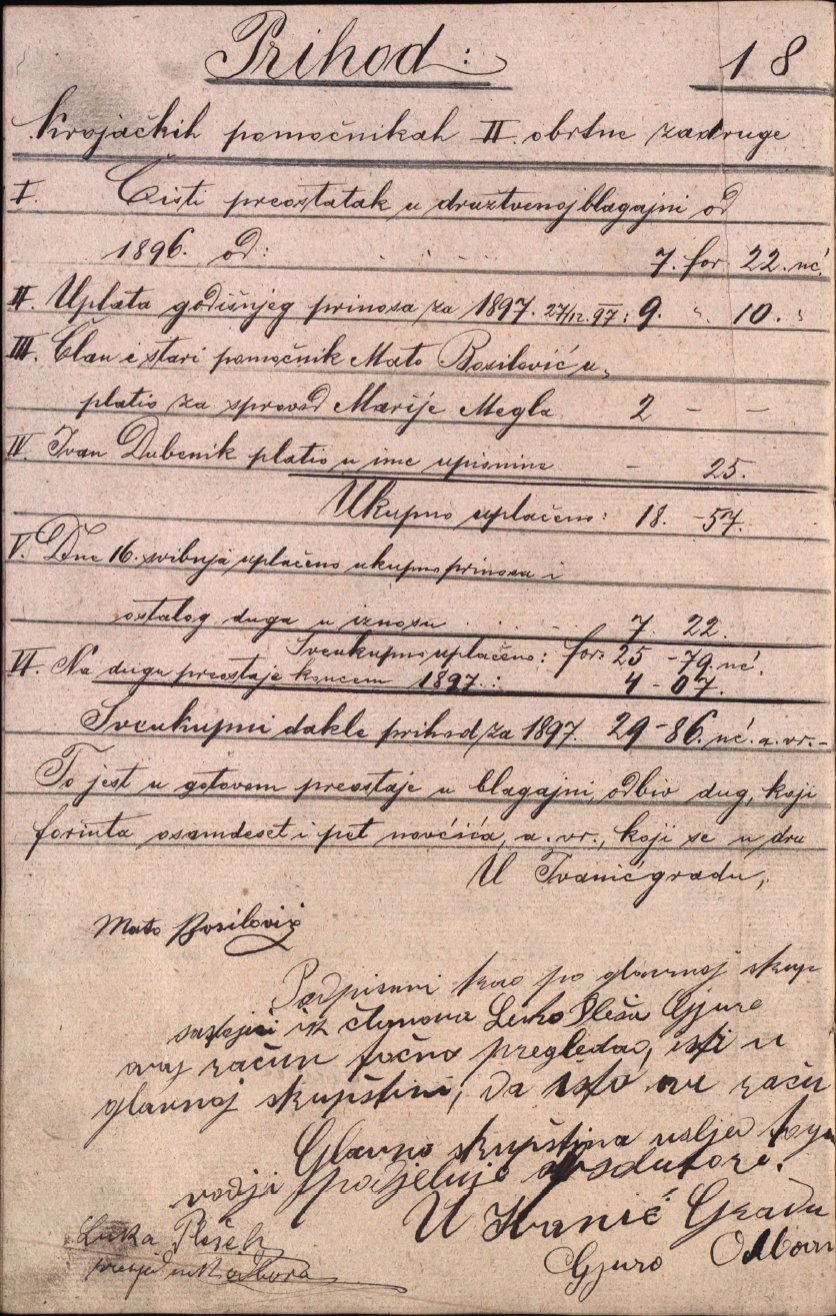 Prihod: 18
Krojačkih pomoćnikah II. obrtne zadruge
I. Čisti preostatak u družtvenoj blagajni od
1896. od: 7. for 22. nč.
II. Uplata godišnjeg prinosa za 1897. 27/12. 97: 9. " 10. "
III. Član i stari pomoćnik Mato Bosilović u-
platio za sprovod Marije Megla 2 - -
IV. Ivan Dubenik platio u ime upisnine - 25.
Ukupno uplaćeno: 18. - 57.
V. Dne 16. svibnja uplaćeno ukupno prinosa i
ostalog duga u iznosu . . . . 7. 22.
Sveukupno uplaćeno: for: 25 - 79. nč.
VI. Na dugu preostaje koncem 1897.: 4 - 07.
Sveukupni dakle prihod za 1897. 29 - 86. nč. a. vr. -
To jest u gotovom preostaje u blagajni, odbiv dug, koji
forinta osamdeset i pet novčića, a. vr., koji se u dru
U Ivanićgradu,
Mato Bosilović
Podpisani kao po glavnoj skup
sastojeći iz članova Luko Pleša Gjuro
ovaj račun točno pregledao, isti u
glavnoj skupštini, da isto ove raču
Glavna skupština usljed toga
podjeljuje
U Ivanić Gradu
Luka Plešeh
Gjuro Odbor